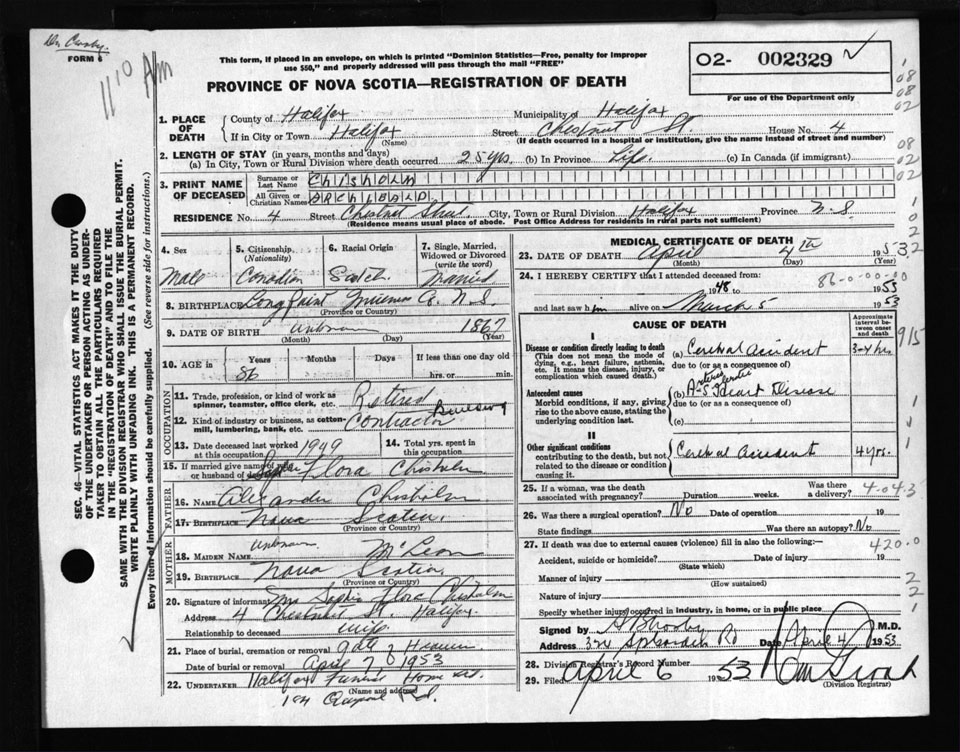 Dr Crosby.
FORM 6
1110 Am
This form, if placed in an envelope, on which is printed "Dominion Statistics—Free, penalty for improper
use $50," and properly addressed will pass through the mail "FREE"
PROVINCE OF NOVA SCOTIA—REGISTRATION OF DEATH
O2- 002329
For use of the Department only
SEC. 46—VITAL STATISTICS ACT MAKES IT THE DUTY
OF THE UNDERTAKER OR PERSON ACTING AS UNDER-
TAKER TO OBTAIN ALL THE PARTICULARS REQUIRED
IN THE "REGISTRATION OF DEATH" AND TO FILE THE
SAME WITH THE DIVISION REGISTRAR WHO SHALL ISSUE THE BURIAL PERMIT.
WRITE PLAINLY WITH UNFADING INK. THIS IS A PERMANENT RECORD.
Every item of information should be carefully supplied. (See reverse side for instructions.)
1. PLACE OF DEATH
County of Halifax Municipality of Halifax
If in City or Town Halifax Street Chestnut St. House No. 4
(Name) (If death occurred in a hospital or institution, give the name instead of street and number)
2. LENGTH OF STAY (in years, months and days)
(a) In City, Town or Rural Division where death occurred 25 yrs. (b) In Province Life. (c) In Canada (if immigrant)
3. PRINT NAME OF DECEASED
Surname or Last Name Chisholm
All Given or Christian Names ARCHIBALD
RESIDENCE No. 4 Street Chestnut Street City, Town or Rural Division Halifax Province N.S.
(Residence means usual place of abode. Post Office Address for residents in rural parts not sufficient)
4. Sex
Male
5. Citizenship (Nationality)
Canadian
6. Racial Origin
Scotch
7. Single, Married, Widowed or Divorced (write the word)
Married
8. BIRTHPLACE Long Point Inverness Co. N.S.
(Province or Country)
9. DATE OF BIRTH unknown 1867
(Month) (Day) (Year)
10. AGE in Years Months Days If less than one day old
86 hrs. or min.
OCCUPATION
11. Trade, profession, or kind of work as
spinner, teamster, office clerk, etc. Retired
12. Kind of industry or business, as cotton
mill, lumbering, bank, etc. Contractor Building
13. Date deceased last worked at this occupation 1949
14. Total yrs. spent in this occupation
15. If married give name of wife
or husband of Sophie Flora Chisholm
FATHER
16. NAME Alexander Chisholm
17. BIRTHPLACE Nova Scotia.
(Province or Country)
MOTHER
18. MAIDEN NAME unknown McLean
19. BIRTHPLACE Nova Scotia
(Province or Country)
20. Signature of informant Mrs Sophie Flora Chisholm
Address 4 Chestnut St. Halifax.
Relationship to deceased wife
21. Place of burial, cremation or removal Gate of Heaven
Date of burial or removal April 7 1953
22. UNDERTAKER Halifax Funeral Home Ltd.
(Name and address)
MEDICAL CERTIFICATE OF DEATH
23. DATE OF DEATH April 4th 1953
(Month) (Day)
24. I HEREBY CERTIFY that I attended deceased from:
1948 1953
and last saw him alive on March 5 1953
86-0-00-00
CAUSE OF DEATH
Approximate interval between onset and death
I
Disease or condition directly leading to death (a) Cerebral accident 3-4 hrs
(This does not mean the mode of dying, e.g., heart failure, asthenia, etc. It means the disease, injury, or complication which caused death.)
due to (or as a consequence of)
Antecedent causes
Morbid conditions, if any, giving rise to the above cause, stating the underlying condition last.
(b) Arteriosclerotic Heart Disease
due to (or as a consequence of)
(c)
II
Other significant conditions
contributing to the death, but not related to the disease or condition causing it.
Cerebral accident 4 yrs.
25. If a woman, was the death associated with pregnancy? Duration weeks. Was there a delivery?
404.3
26. Was there a surgical operation? No Date of operation 19
State findings Was there an autopsy? No
27. If death was due to external causes (violence) fill in also the following:
420.0
Accident, suicide or homicide? Date of injury 19
(State which)
Manner of injury
(How sustained)
Nature of injury
Specify whether injury occurred in industry, in home, or in public place
Signed by M.D.
Address Rd Date April 4 1953
28. Division Registrar's Record Number
29. Filed April 6 1953
(Division Registrar)